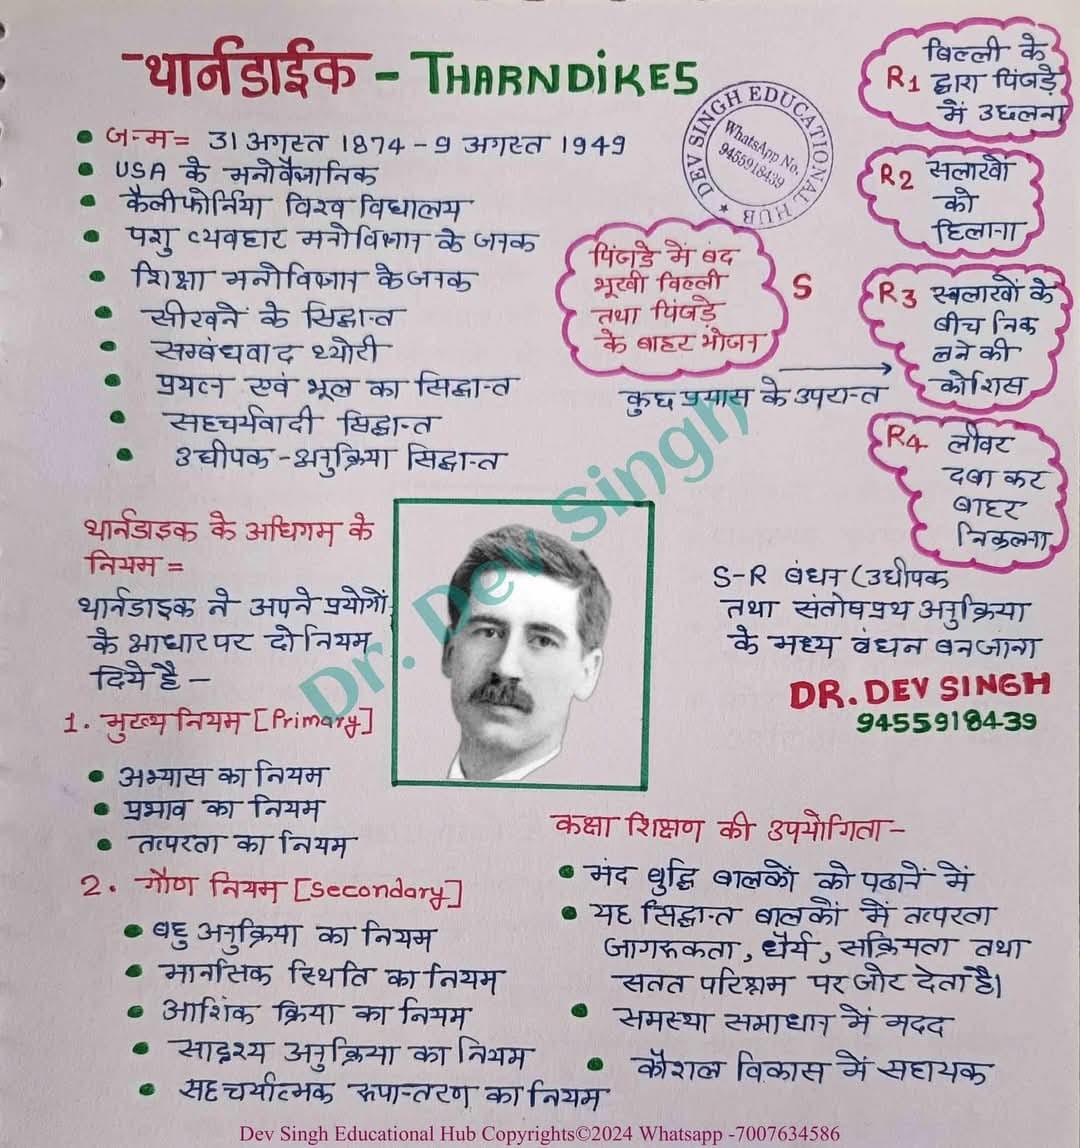 थार्नडाईक - THARNDIKES
जन्म= 31 अगस्त 1874 - 9 अगस्त 1949
USA के मनोवैज्ञानिक
कैलीफोर्निया विश्व विद्यालय
पशु व्यवहार मनोविज्ञान के जनक
शिक्षा मनोविज्ञान के जनक
सीखने के सिद्धान्त
सम्बंधवाद थ्योरी
प्रयत्न एवं भूल का सिद्धान्त
सहचर्यवादी सिद्धान्त
उद्यीपक - अनुक्रिया सिद्धान्त
DEV SINGH EDUCATIONAL HUB
WhatsApp No.
9455918439
पिंजडे में बंद
भूखी बिल्ली
तथा पिंजड़े
के बाहर भोजन
S
कुछ प्रयास के उपरान्त
बिल्ली के
R1 द्वारा पिंजड़े
में उछलना
R2 सलाखों
को
हिलाना
R3 स्वलाखों के
बीच निक
लने की
कोशिस
R4 लीवर
दबा कर
बाहर
निकलना
S-R बंधन (उद्यीपक
तथा संतोषप्रथ अनुक्रिया
के मध्य बंधन बनजाना
DR. DEV SINGH
9455918439
थार्नडाइक के अधिगम के
नियम =
थार्नडाइक ने अपने प्रयोगों
के आधार पर दो नियम
दिये है -
1. मुख्य नियम [Primary]
अभ्यास का नियम
प्रभाव का नियम
तत्परता का नियम
2. गौण नियम [Secondary]
बहु अनुक्रिया का नियम
मानसिक स्थिति का नियम
आशिंक क्रिया का नियम
सादृश्य अनुक्रिया का नियम
सहचर्यात्मक रूपान्तरण का नियम
Dr. Dev Singh
कक्षा शिक्षण की उपयोगिता -
मंद बुद्धि बालकों को पढानें में
यह सिद्धान्त बालकों में तत्परता
जागरुकता, धैर्य, सक्रियता तथा
सतत परिश्रम पर जोर देता है।
समस्या समाधान में मदद
कौशल विकास में सहायक
Dev Singh Educational Hub Copyrights©2024 Whatsapp -7007634586